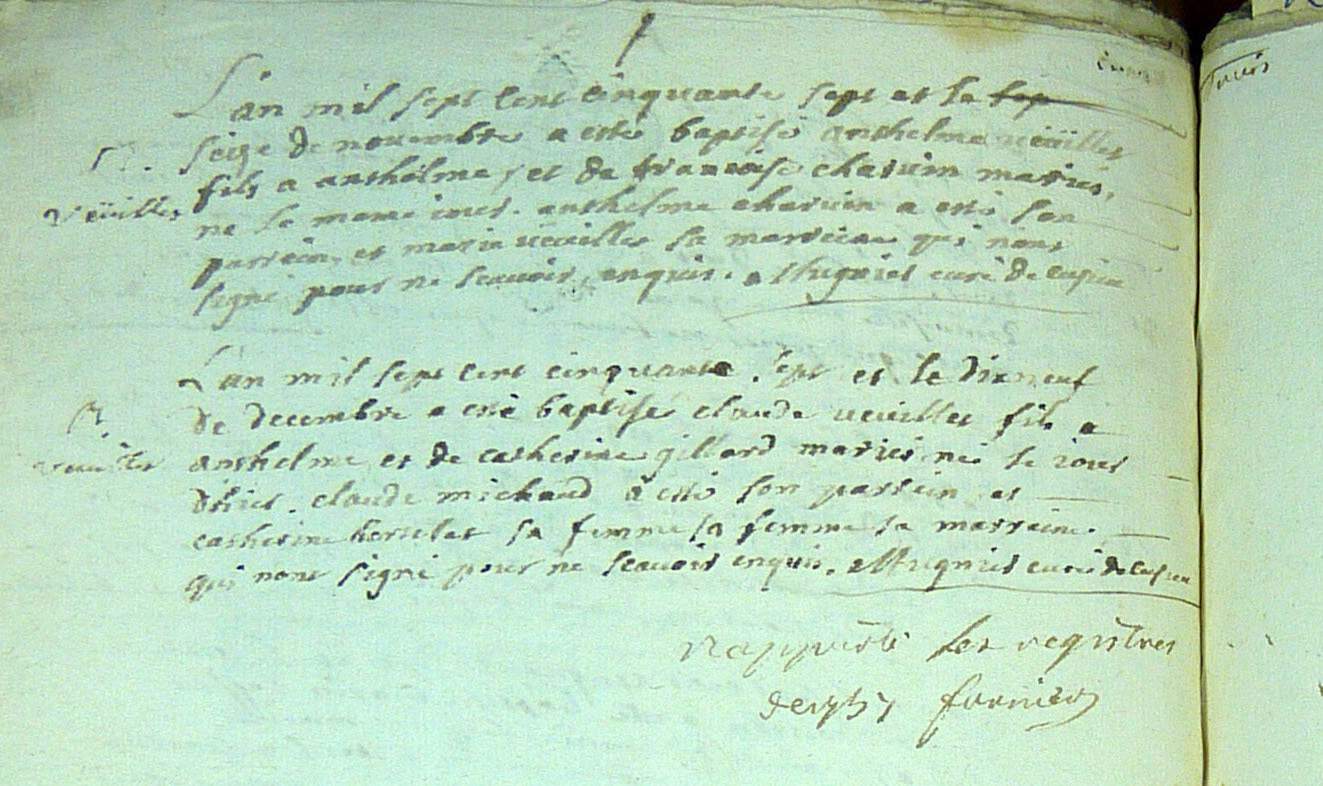 L'an mil sept cent cinquante sept et le sep
seize de novembre a esté baptisé anthelme veüilles
B.
Veüilles
fils a anthelme, et de francoise charvin mariés,
né le meme iour. anthelme charvin a esté son
parrein, et marie veüilles sa marreine qui nont
signé pour ne scavoir, enquis. Mugnier curé de
L'an mil sept cent cinquante sept et le dixneuf
de decembre a esté baptisé claude veuilles fils a
B.
veuilles
anthelme, et de catherine gillard mariés, né le iour
d'hier. claude michaud a esté son parrein, et
catherine sa femme sa femme sa marreine.
qui nont signé pour ne scavoir enquis. Mugnier curé de
rapporté les registres
de 1757